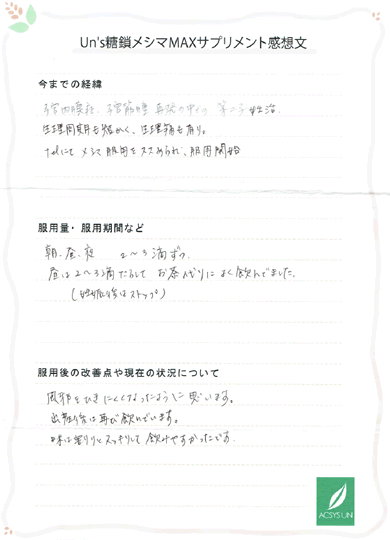 Un's糖鎖メシマMAXサプリメント感想文
今までの経緯
子宮内膜症、子宮筋腫 再発の中での 第二子妊活。
生理周期も短かく、生理痛も有り。
telにて メシマ服用をススめられ、服用開始
服用量・服用期間など
朝、昼、夜 2〜3滴ずつ。
昼は2〜3滴たらして お茶がわりに よく飲んでました。
(妊娠後はストップ)
服用後の改善点や現在の状況について
風邪をひきにくくなったように思います。
出産後は再び飲んでいます。
味は割りとスッキリして 飲みやすかったです。
ACSYS UN